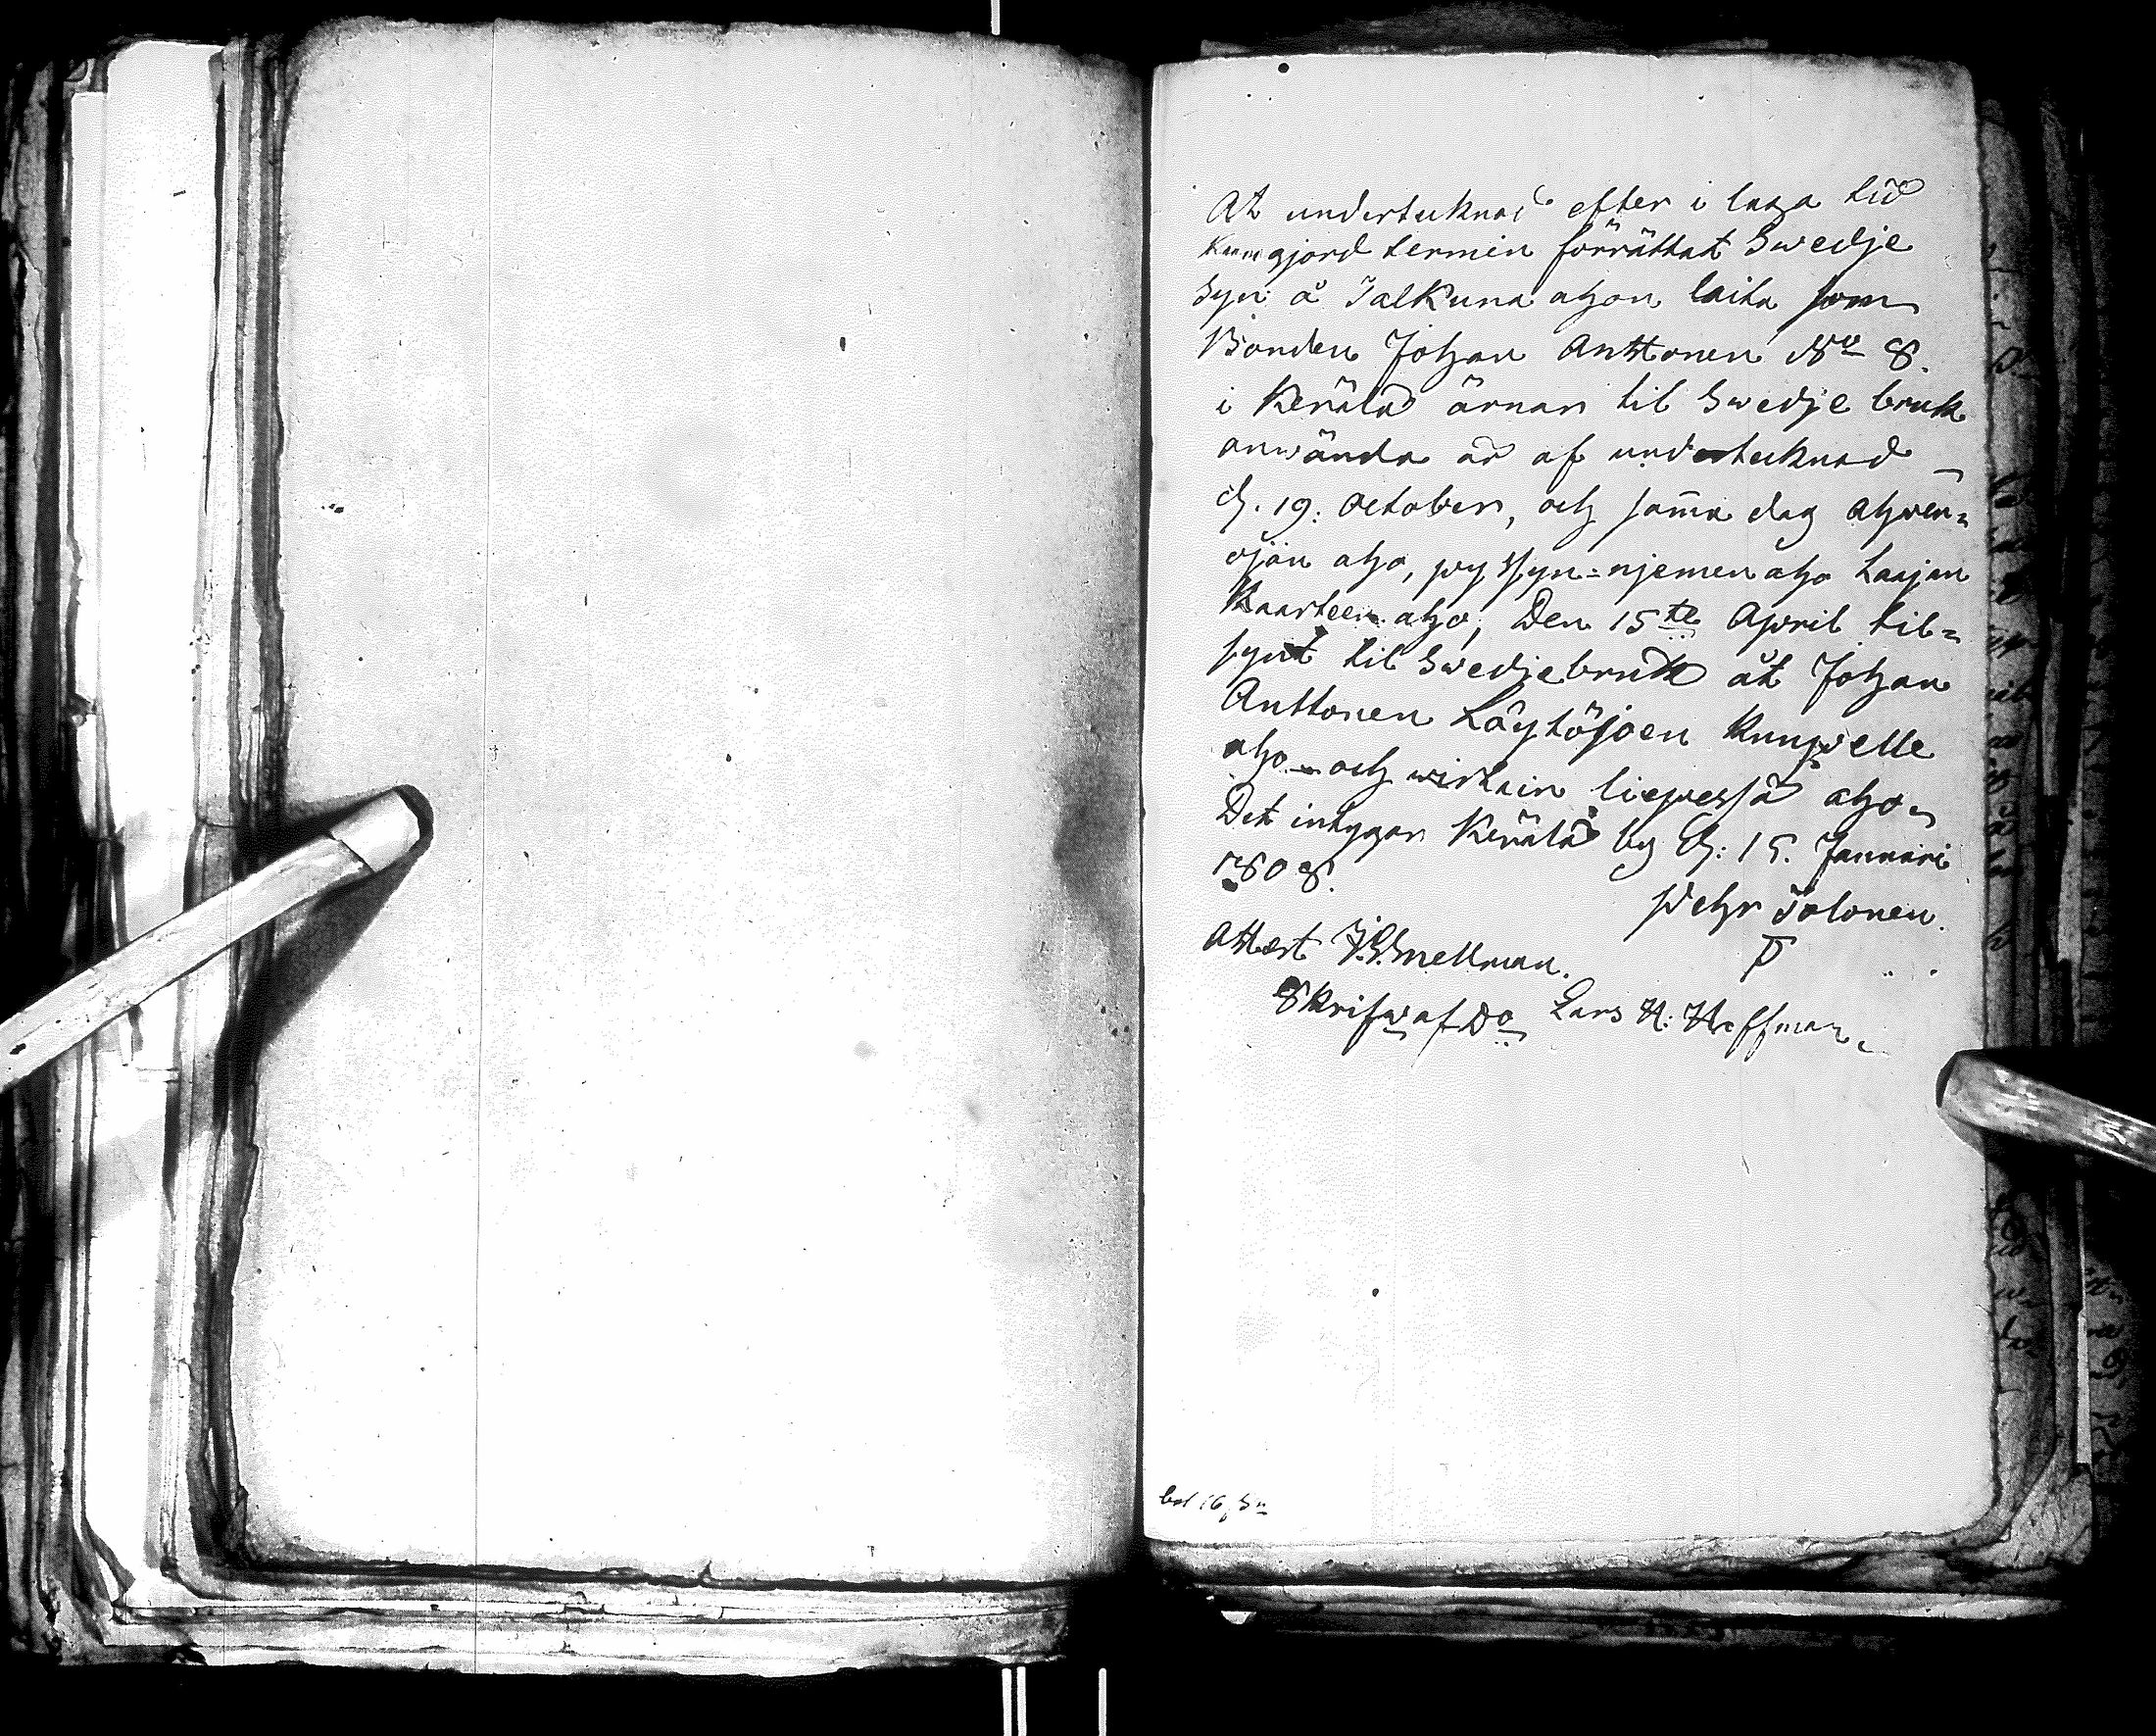 At undertecknad efter i laga tid
kungjord termin förrättat Swedje
Syn å Talkuna ahon laita som
Bonden Johan Anttonen No 8.
i Kerälä ärnar til Swedje bruk
anwända är af undertecknad
d. 19. October, och samma dag
ojan aho, pyssyn-njemen aho Laajan
Kaarteen aho, Den 15te April til-
synt til Swedjebruk åt Johan
Anttonen Löytöjoen
aho och liepessä aho
Det intygar Kerälä by d: 15. Januari
1808.
Pehr Tolonen.
Attest J. S. Snellman.
Skrifw af Do Lars H: Hoffman